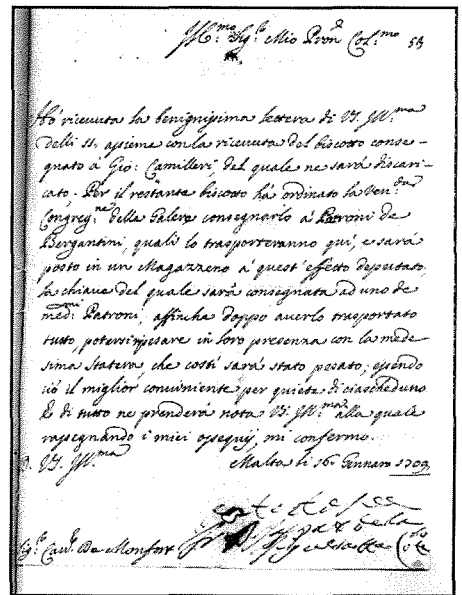 Ill:mo Sig:re Mio Pron Col:mo 53
Hò riceuuta la benignissima lettera di V.S. Ill:ma
delli 11. assieme con la riceuuta del biscotto conse-
gnato à Gio: Camilleri, del quale ne sarà discari-
cato. Per il restante biscotto hà ordinato la Ven:da
Congreg:ne della Galere consegnarlo à Patroni de
Bergantini, quali lo trasporteranno qui, e sarà
posto in un Magazzeno à quest'effetto deputato,
la chiaue del quale sarà consegnata ad uno de
med:mi Patroni, affinche doppo auerlo trasportato
tutto, potersi pesare in loro presenza con la mede-
sima statera, che costì sarà stato pesato; essendo
ciò il miglior conueniente per quiete di ciascheduno
& di tutto ne prenderà nota V.S. Ill:ma alla quale
rassegnando i miei ossequij, mi confermo.
D. V.S. Ill:ma Malta li 16. Gennaro 1709
Sig:re Cau:r De Monfor